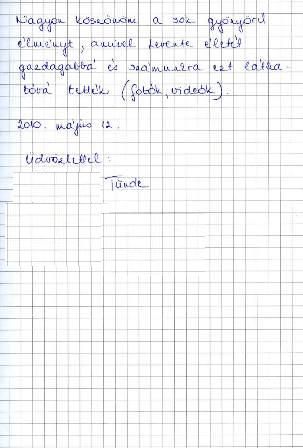 Nagyon köszönöm a sok gyönyörű
élményt, amivel Levente életét
gazdagabbá és számunkra ezt látha-
tóvá tették (fotók, videók).
2010. május 12.
Üdvözlettel:
Tünde